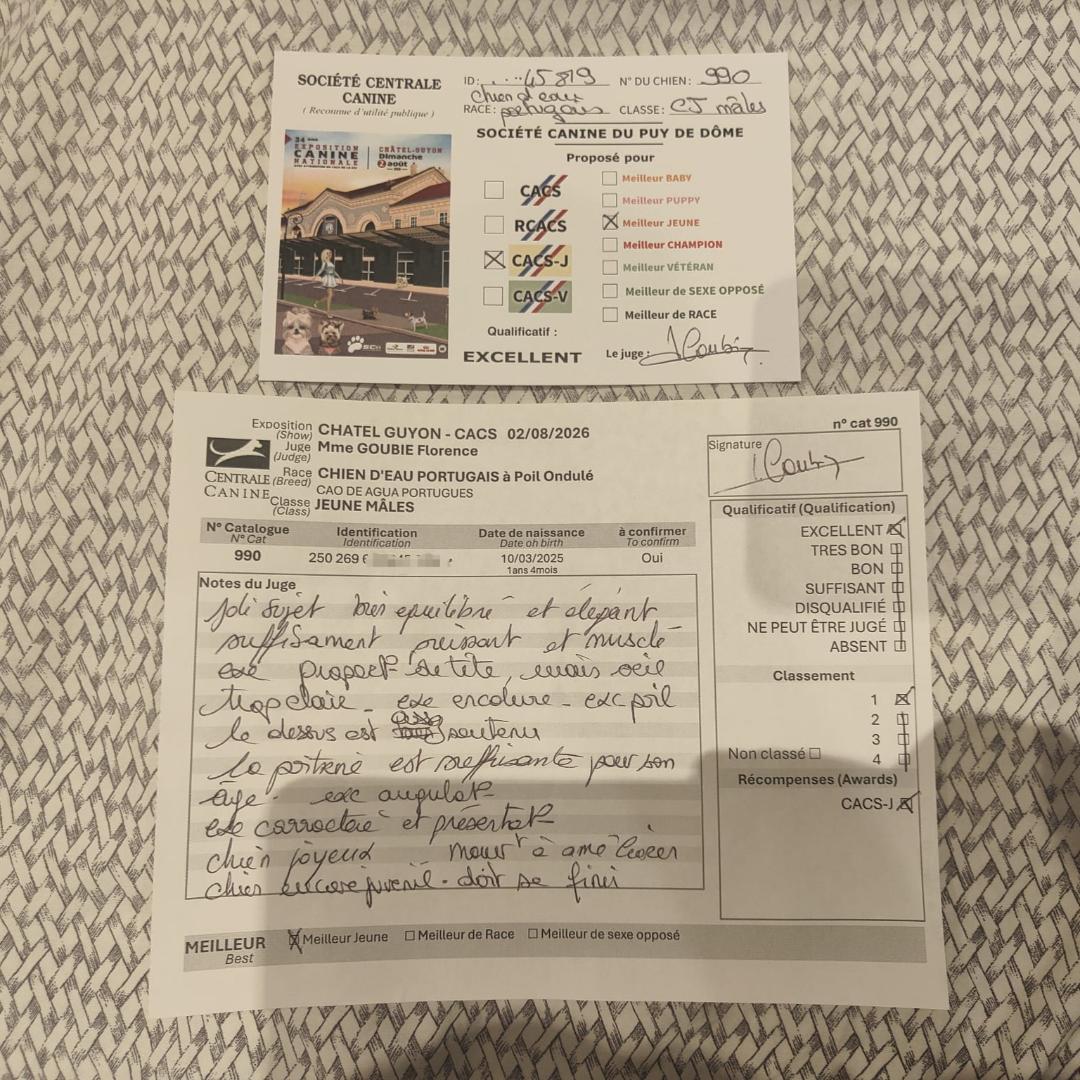 SOCIÉTÉ CENTRALE
CANINE
( Reconnue d'utilité publique )
34 ème
EXPOSITION
CANINE
NATIONALE
CHÂTEL-GUYON
Dimanche
2 août
ID: 45819 N° DU CHIEN: 990
Chien d'eau
RACE: portugais CLASSE: CJ mâles
SOCIÉTÉ CANINE DU PUY DE DÔME
Proposé pour
CACS
RCACS
CACS-J
CACS-V
Meilleur BABY
Meilleur PUPPY
Meilleur JEUNE
Meilleur CHAMPION
Meilleur VÉTÉRAN
Meilleur de SEXE OPPOSÉ
Meilleur de RACE
Qualificatif :
EXCELLENT
Le juge :
Exposition (Show) CHATEL GUYON - CACS 02/08/2026
Juge (Judge) Mme GOUBIE Florence
Race (Breed) CHIEN D'EAU PORTUGAIS à Poil Ondulé
CAO DE AGUA PORTUGUES
Classe (Class) JEUNE MÂLES
CENTRALE
CANINE
n° cat 990
Signature
N° Catalogue Identification Date de naissance à confirmer
N° Cat Identification Date oh birth To confirm
990 250 269 10/03/2025 Oui
1ans 4mois
Notes du Juge
joli sujet bien equilibré et élégant
suffisament puissant et musclé
exc propor<sup>t</sup> de tête, mais oeil
trop clair - exc encolure - exc poil
le dessus est soutenu
la poitrine est suffisante pour son
age. exc angulat<sup>°</sup>
exc carractere et présentat<sup>°</sup>
chien joyeux mouv<sup>t</sup> à améliorer
chien encore juvenil - doit se finir
Qualificatif (Qualification)
EXCELLENT
TRES BON
BON
SUFFISANT
DISQUALIFIÉ
NE PEUT ÊTRE JUGÉ
ABSENT
Classement
1
2
3
Non classé 4
Récompenses (Awards)
CACS-J
MEILLEUR Meilleur Jeune Meilleur de Race Meilleur de sexe opposé
Best